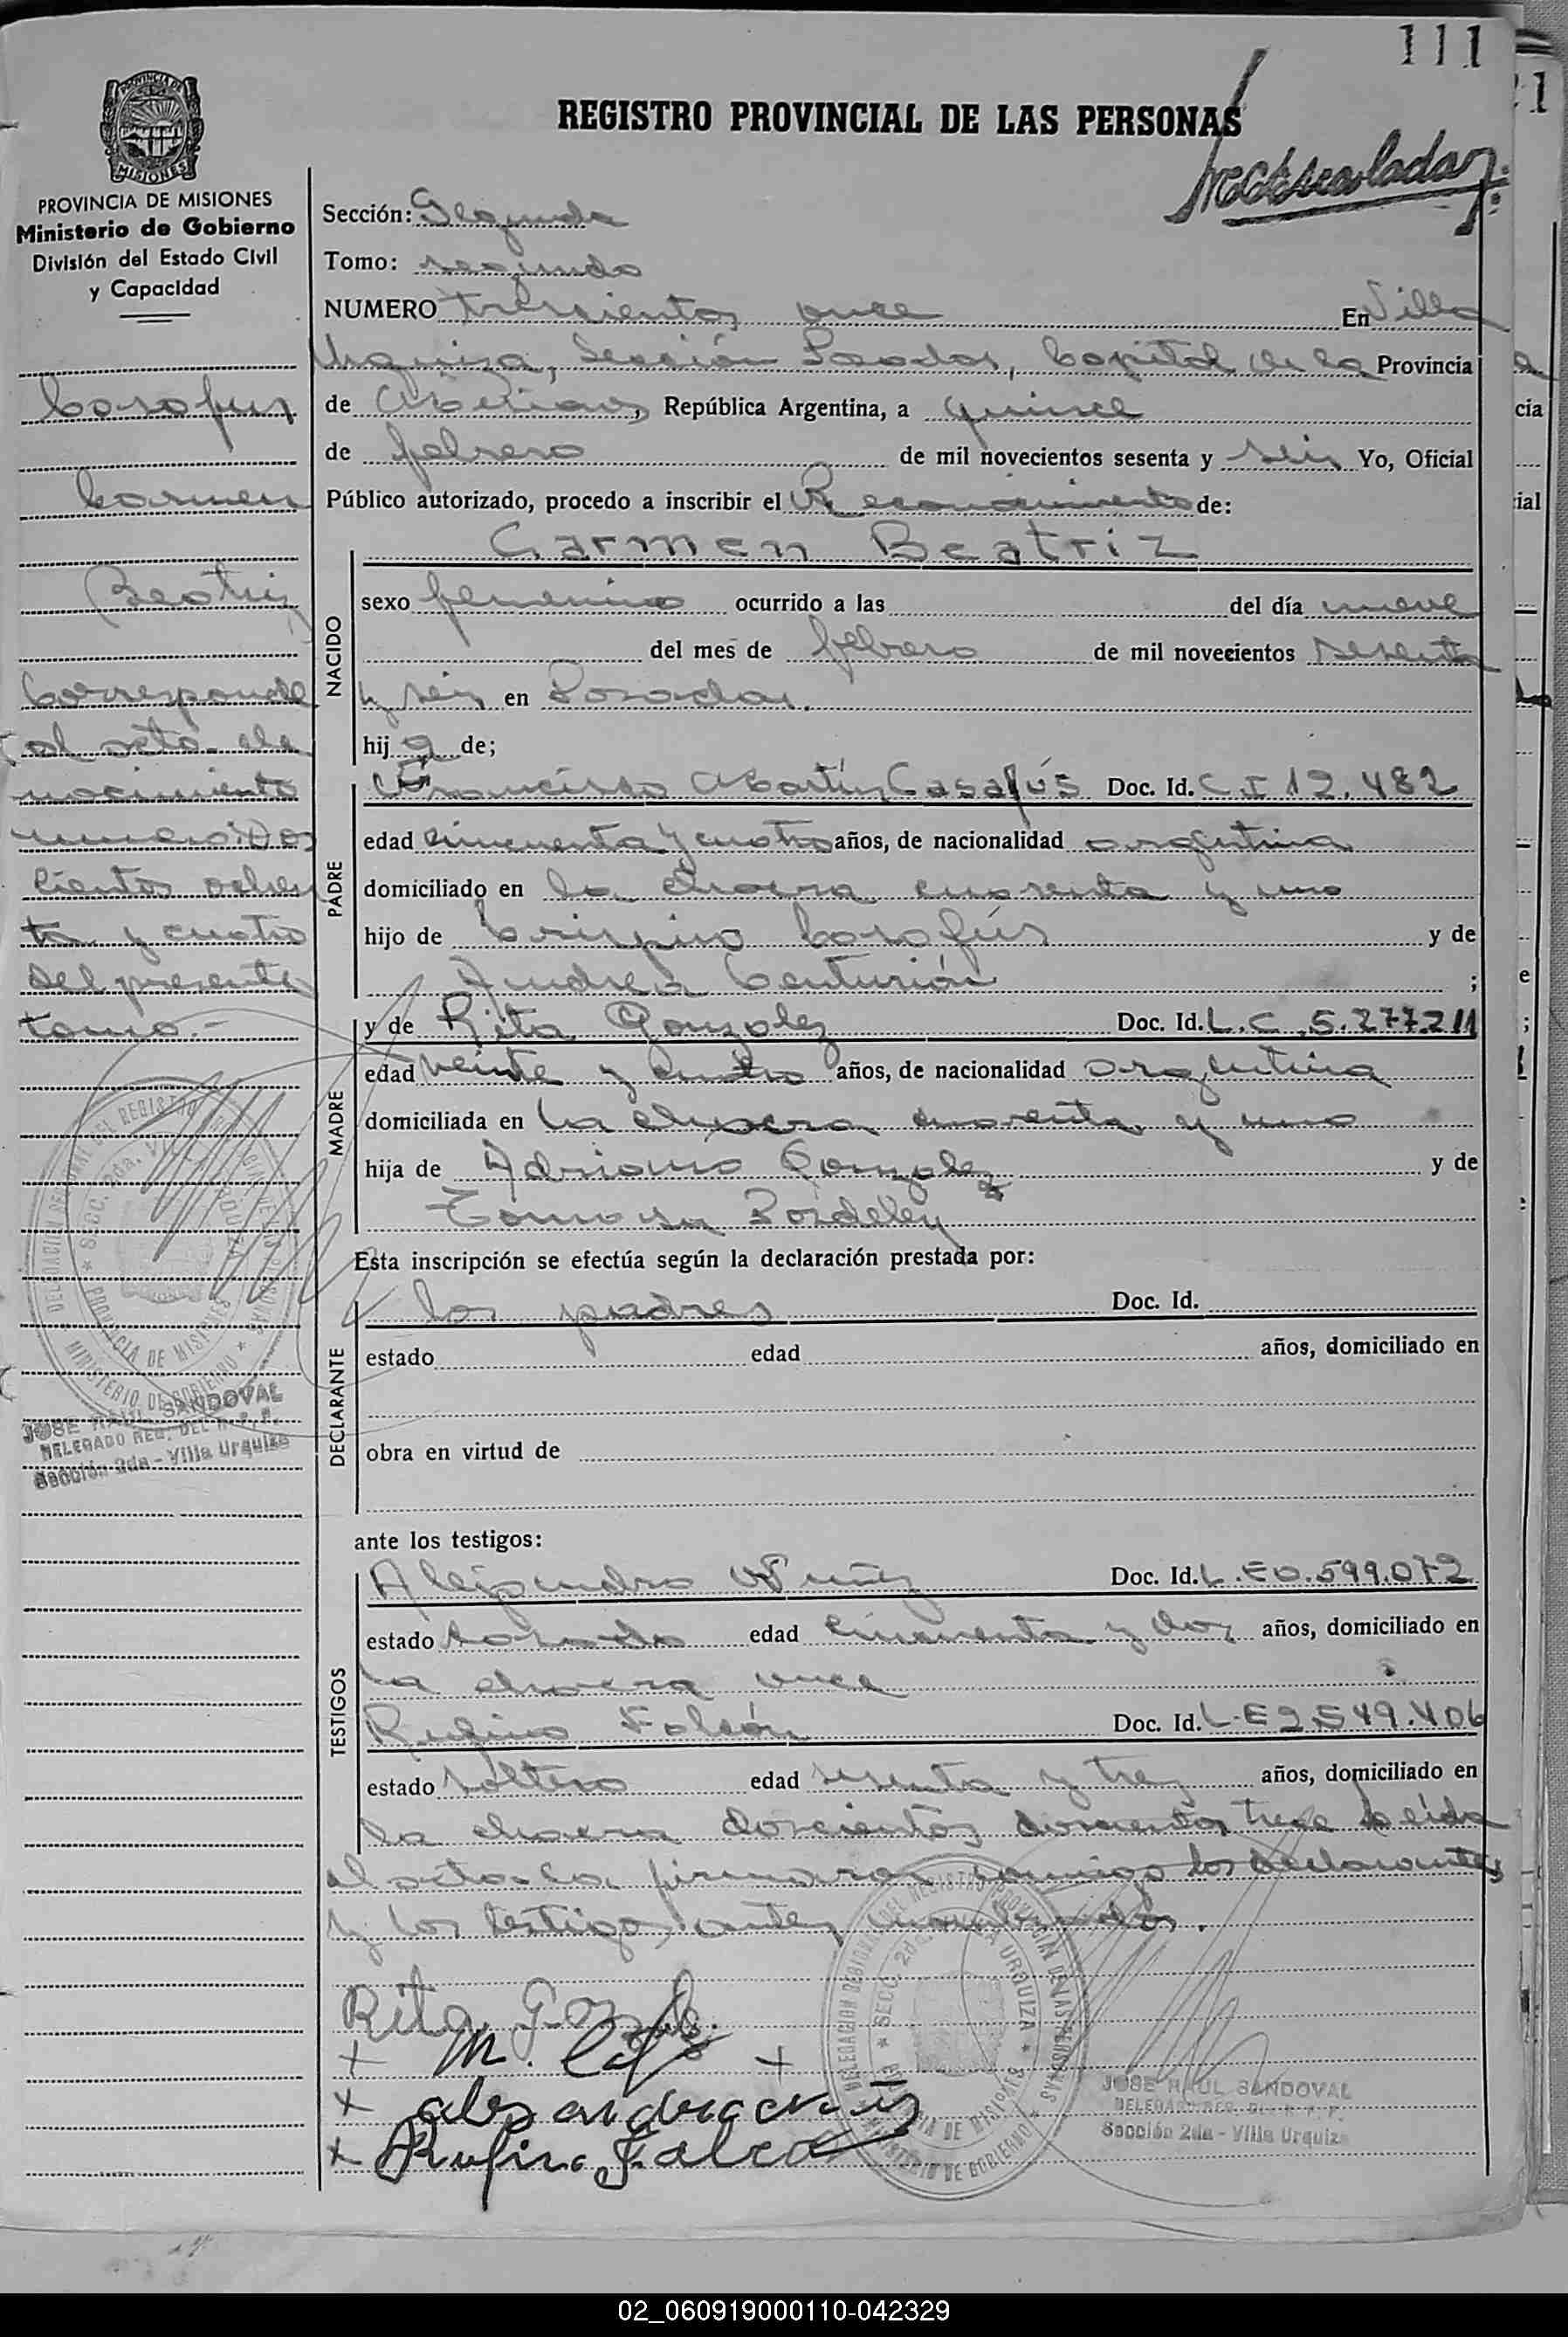 111
REGISTRO PROVINCIAL DE LAS PERSONAS
PROVINCIA DE MISIONES
Ministerio de Gobierno
División del Estado Civil
y Capacidad
Casafus
Carmen
Beatriz
Corresponde
al acta de
nacimiento
numero: Dos
cientos ochen
ta y cuatro
del presente
tomo.-
JOSE RAUL SANDOVAL
DELEGADO REG. DEL R. P. P.
Sección 2da - Villa Urquiza
Sección: Segunda
Tomo: segundo
NUMERO trescientos once En Villa
Urquiza, Sección Posadas, Capital de la Provincia
de Misiones, República Argentina, a quince
de febrero de mil novecientos sesenta y seis Yo, Oficial
Público autorizado, procedo a inscribir el Reconocimiento de:
Carmen Beatriz
NACIDO
sexo femenino ocurrido a las del día nueve
del mes de febrero de mil novecientos sesenta
y seis en Posadas.
hij a de;
PADRE
Francisco Martin Casafús Doc. Id. C.I 12.482
edad cincuenta y cuatro años, de nacionalidad argentina
domiciliado en la chacra cuarenta y uno
hijo de Crispino Casafús y de
Andrea Centurión ;
MADRE
y de Rita Gonzalez Doc. Id. L.C. 5.277.211
edad veinte y cuatro años, de nacionalidad argentina
domiciliada en la chacra cuarenta y uno
hija de Adriano Gonzalez y de
Tomasa
Esta inscripción se efectúa según la declaración prestada por:
DECLARANTE
los padres Doc. Id.
estado edad años, domiciliado en
obra en virtud de
ante los testigos:
TESTIGOS
Alejandro Nuñez Doc. Id. L.E 0.599.072
estado casado edad cincuenta y dos años, domiciliado en
la chacra once
Rufino Falcón Doc. Id. L.E 2.549.406
estado soltero edad sesenta y tres años, domiciliado en
la chacra doscientos trece Leída
el acta la firmaron conmigo los declarantes
y los testigos antes nombrados.
Rita Gonzalez
x M. x
x
x Rufino Falcon
JOSE RAUL SANDOVAL
DELEGADO REG. DEL R. P. P.
Sección 2da - Villa Urquiza
02_060919000110-042329